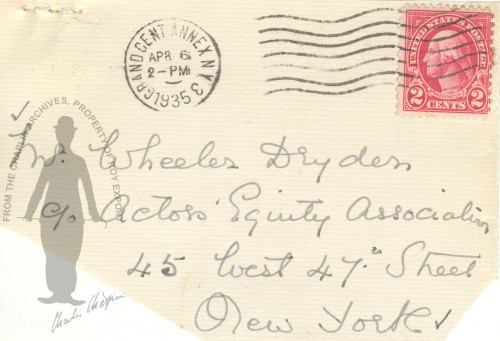 GRAND CENT. ANNEX. N.Y. 3
APR 6
2-PM
1935
UNITED STATES POSTAGE
2 CENTS 2
Mr. Wheeler Dryden
c/o Actors' Equity Association
45 West 47th Street
New York
FROM THE CHAPLIN ARCHIVES, PROPERTY OF ROY EXPORT
Charlie Chaplin